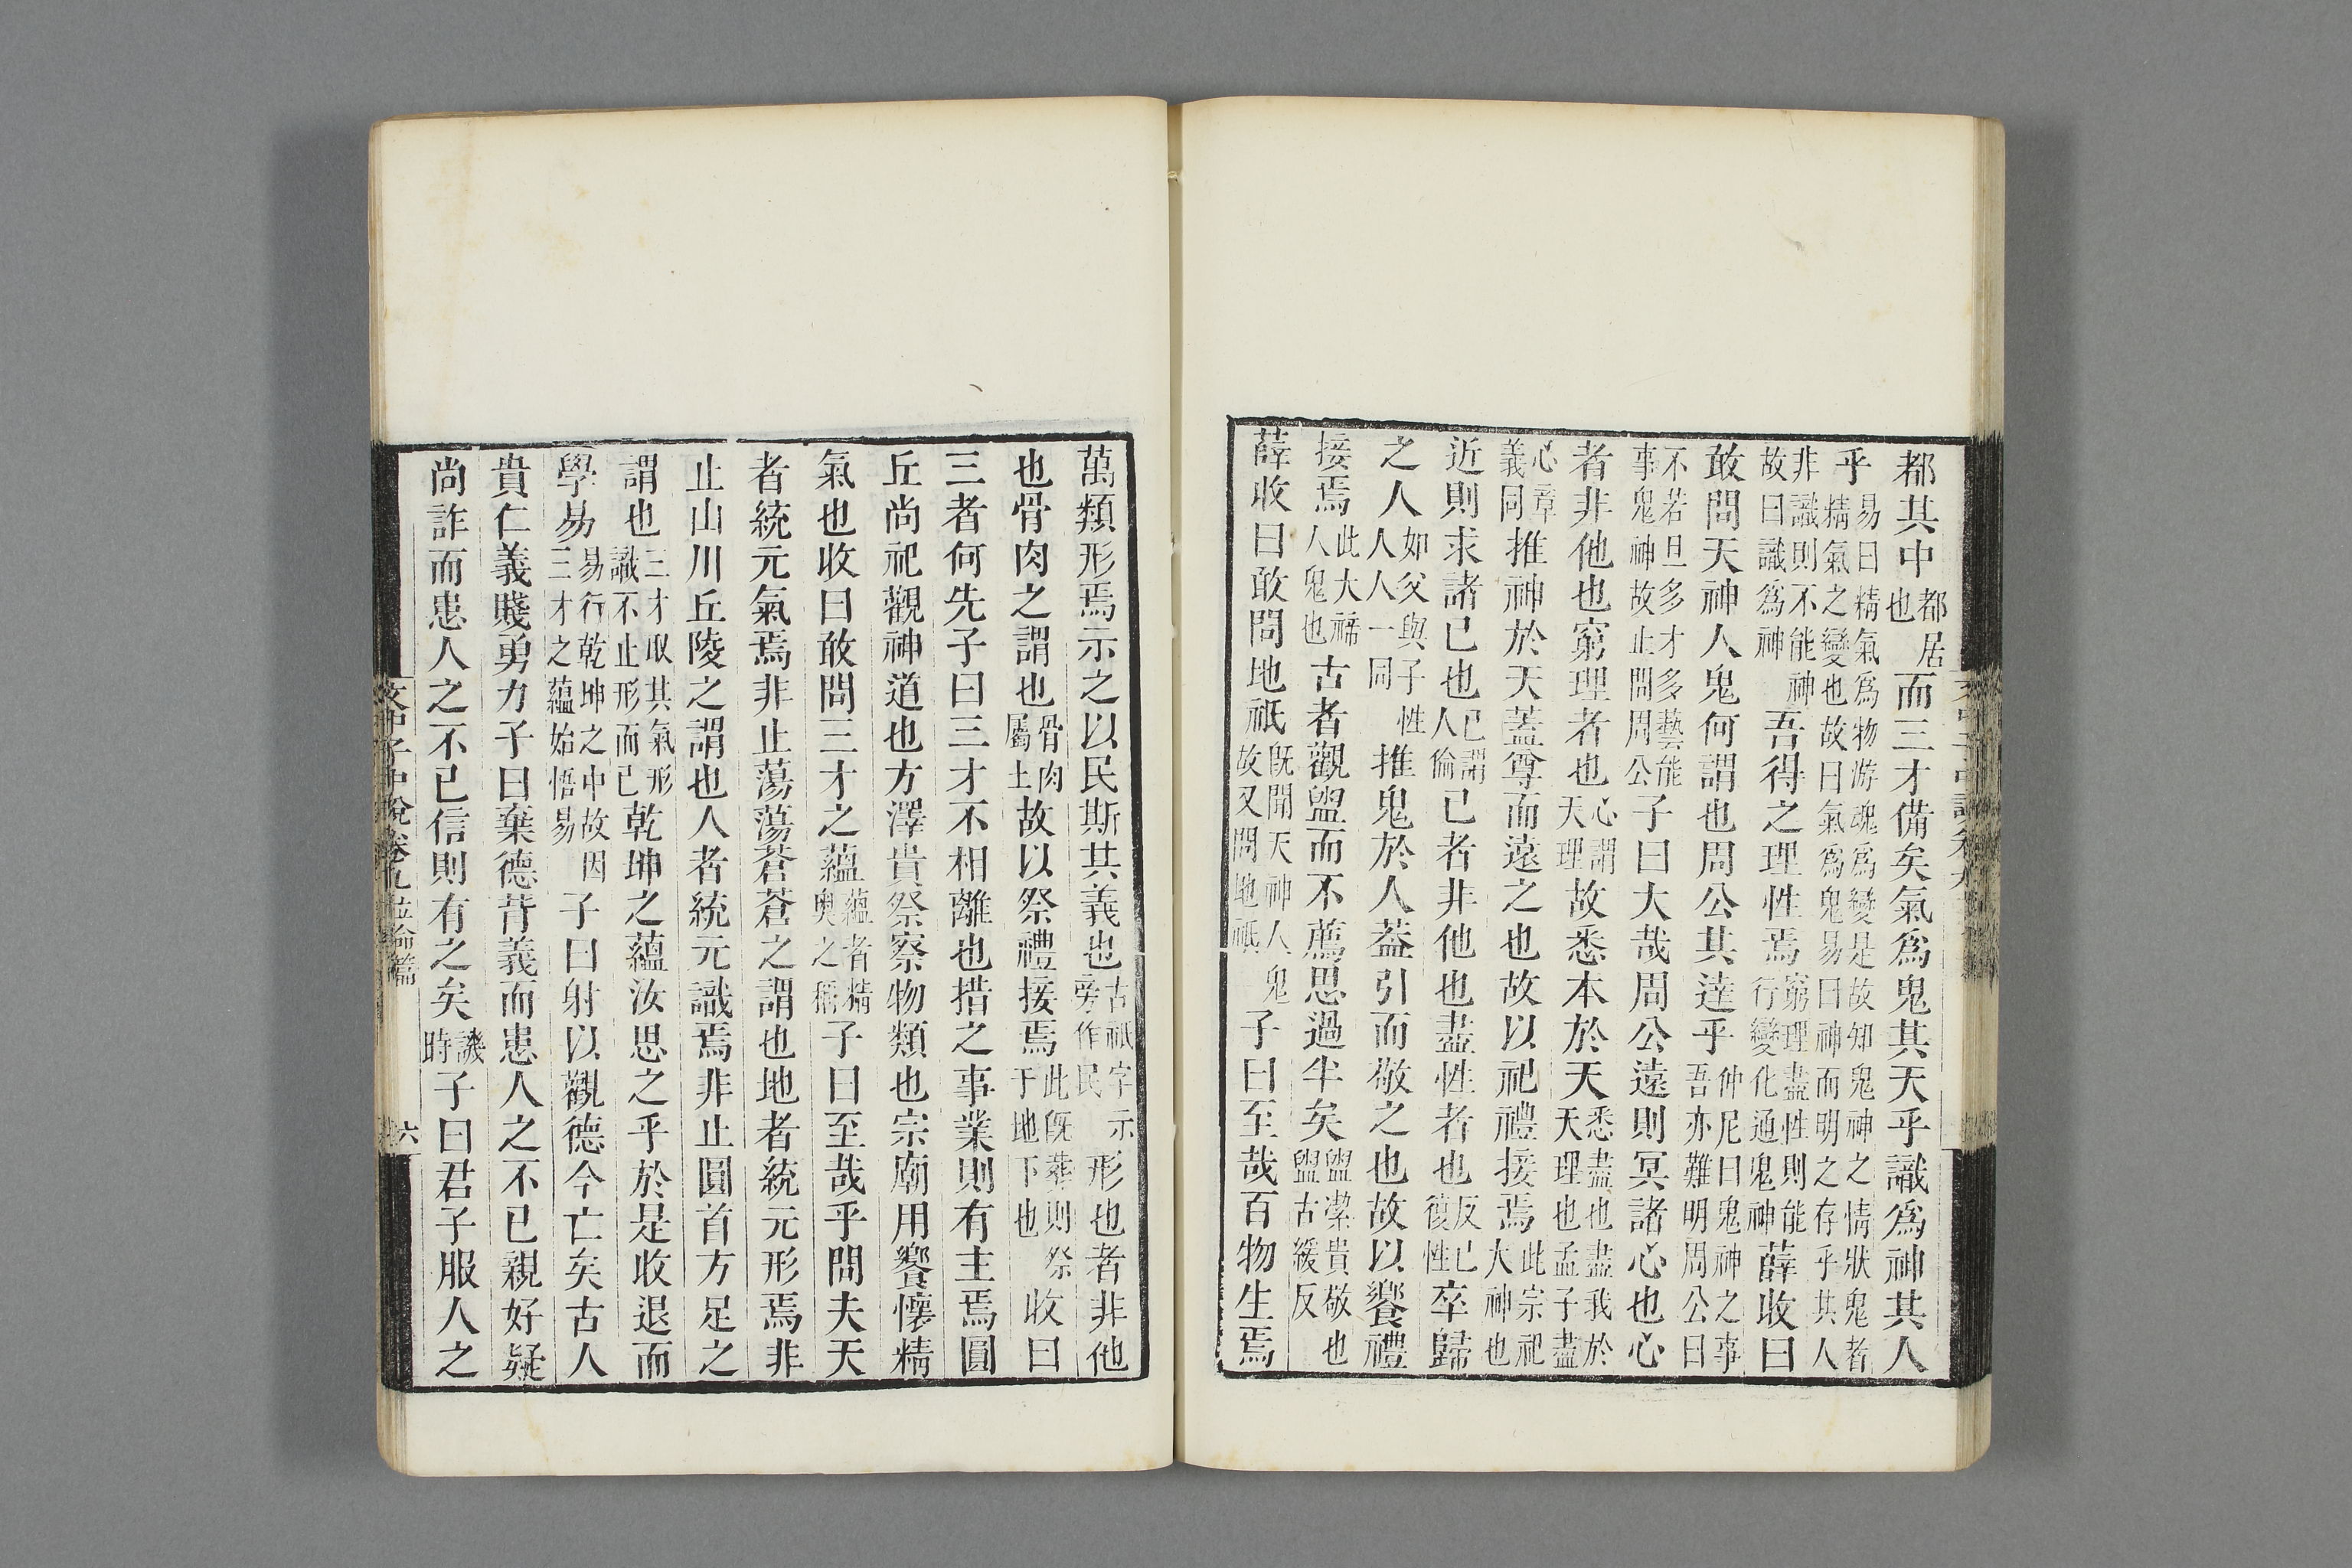 都其中都居也而三才備矣氣爲鬼其天乎識爲神其人
乎易曰精氣爲物游魂爲變是故知鬼神之情狀鬼者精氣之變也故曰氣爲鬼易曰神而明之存乎其人
非識則不能神故曰識爲神吾得之理性焉窮理盡性則能行變化通鬼神薛收曰
敢問天神人鬼何謂也周公其達乎仲尼曰鬼神之事吾亦難明周公曰
不若旦多才多藝能事鬼神故止問周公子曰大哉周公遠則冥諸心也心
者非他也窮理者也心謂天理故悉本於天悉盡也盡我於天理也孟子盡
心章義同推神於天蓋尊而遠之也故以祀禮接焉此宗祀大神也
近則求諸己也己謂人倫己者非他也盡性者也反己復性卒歸
之人如父與子性人人一同推鬼於人蓋引而敬之也故以饗禮
接焉此大禘人鬼也古者觀盥而不薦思過半矣盥潔貴敬也盥古緩反
薛收曰敢問地祇既聞天神人鬼故又問地祇子曰至哉百物生焉
萬類形焉示之以民斯其義也古祇字示旁作民形也者非他
也骨肉之謂也骨肉屬土故以祭禮接焉此既葬則祭于地下也收曰
三者何先子曰三才不相離也措之事業則有主焉圓
丘尚祀觀神道也方澤貴祭察物類也宗廟用饗懷精
氣也收曰敢問三才之蘊蘊者精奧之稱子曰至哉乎問夫天
者統元氣焉非止蕩蕩蒼蒼之謂也地者統元形焉非
止山川丘陵之謂也人者統元識焉非止圓首方足之
謂也三才取其氣形識不止形而已乾坤之蘊汝思之乎於是收退而
學易易行乾坤之中故因三才之蘊始悟易子曰射以觀德今亡矣古人
貴仁義賤勇力子曰棄德背義而患人之不已親好疑
尚詐而患人之不已信則有之矣譏時子曰君子服人之
文中子中說卷九 立命篇 六